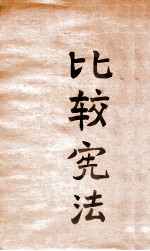 比较宪法